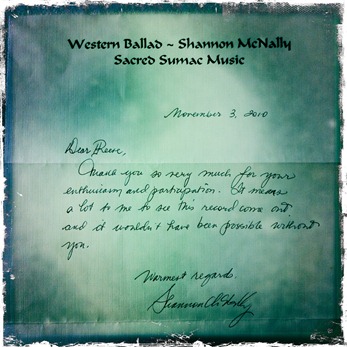 Western Ballad ~ Shannon McNally
Sacred Sumac Music
November 3, 2010
Dear Reeve,
Thank you so very much for your
enthusiasm and participation. It means
a lot to me to see this record come out
and it wouldn't have been possible without
you.
Warmest regards
Shannon McNally